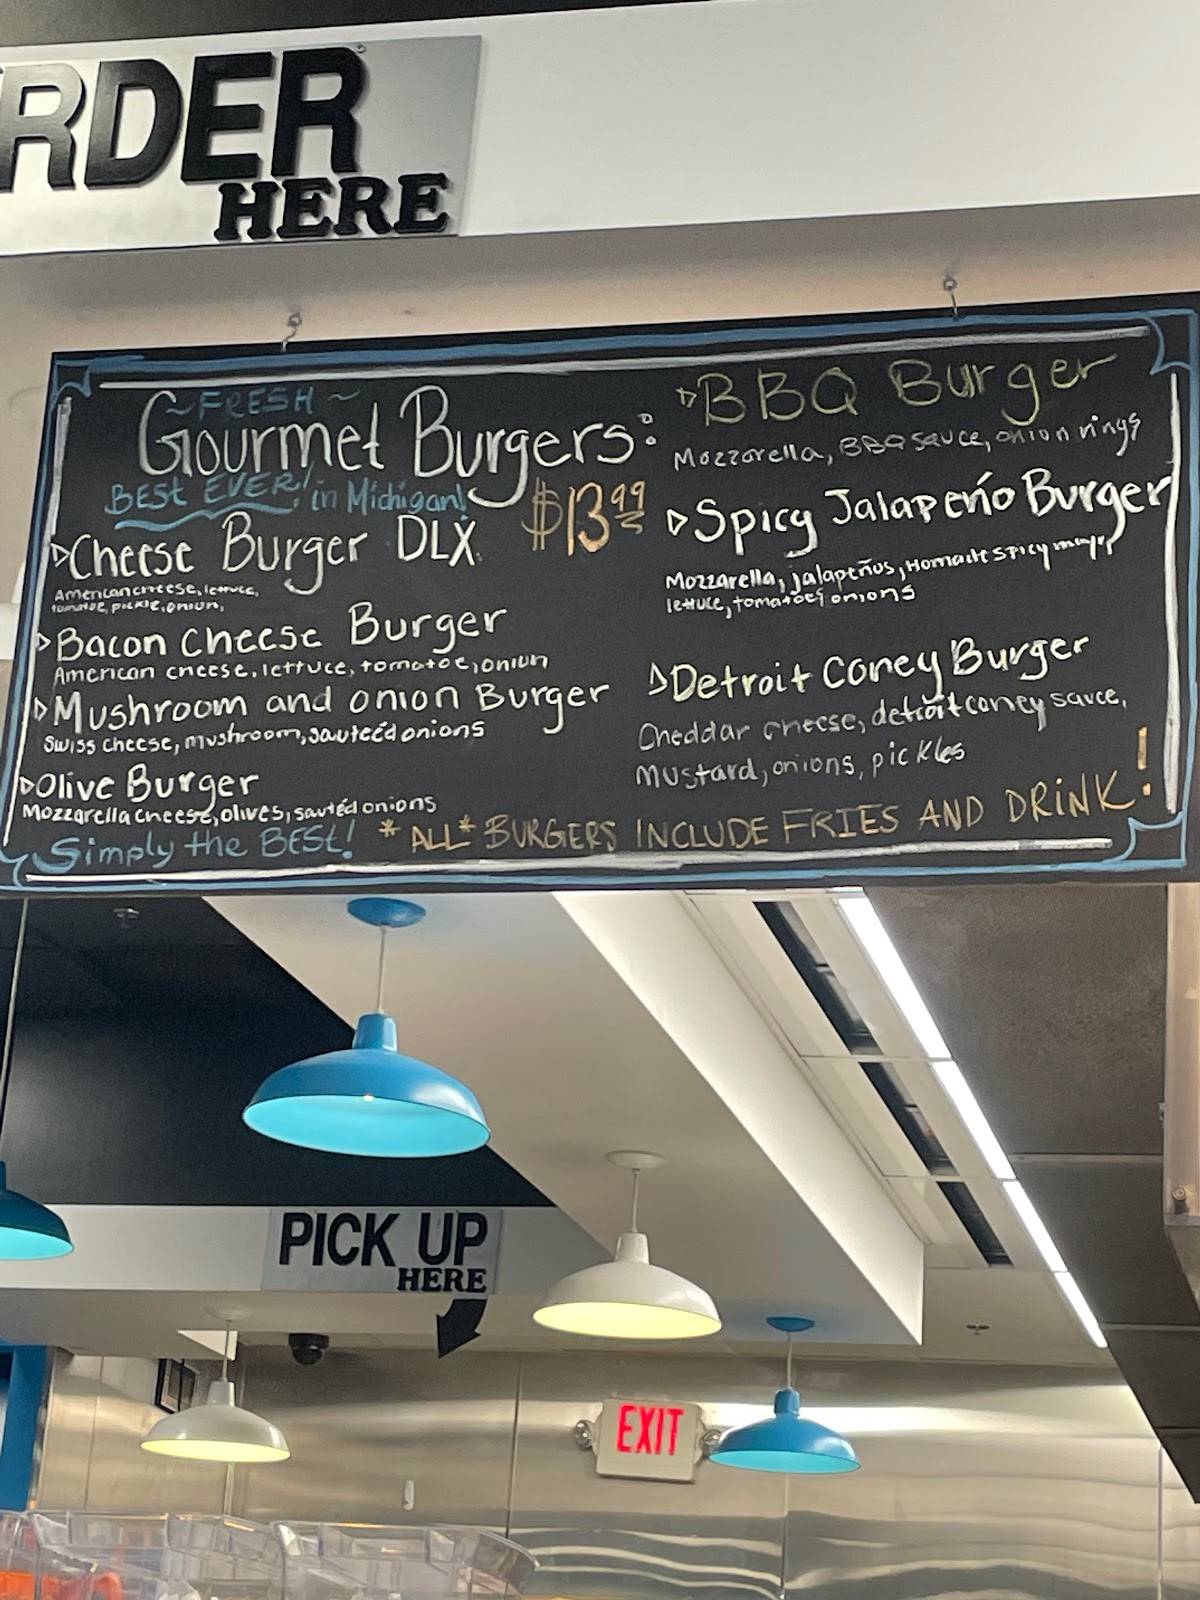 RDER
HERE
~FRESH~
Gourmet Burgers:
BEST EVER! in Michigan!
$13.99
▷Cheese Burger DLX
American cheese, lettuce,
tomatoe, pickle, onion,
▷Bacon Cheese Burger
American cheese, lettuce, tomatoe, onion
▷Mushroom and onion Burger
Swiss cheese, mushroom, sauteéd onions
▷Olive Burger
Mozzarella cheese, olives, sautéd onions
Simply the BEST!
▷BBQ Burger
Mozzarella, BBQ sauce, onion rings
▷Spicy Jalapeño Burger
Mozzarella, jalapeños, Homade spicy mayo,
lettuce, tomatoes onions
▷Detroit Coney Burger
Cheddar cheese, detroit coney sauce,
Mustard, onions, pickles
*ALL* BURGERS INCLUDE FRIES AND DRINK!
PICK UP
HERE
EXIT